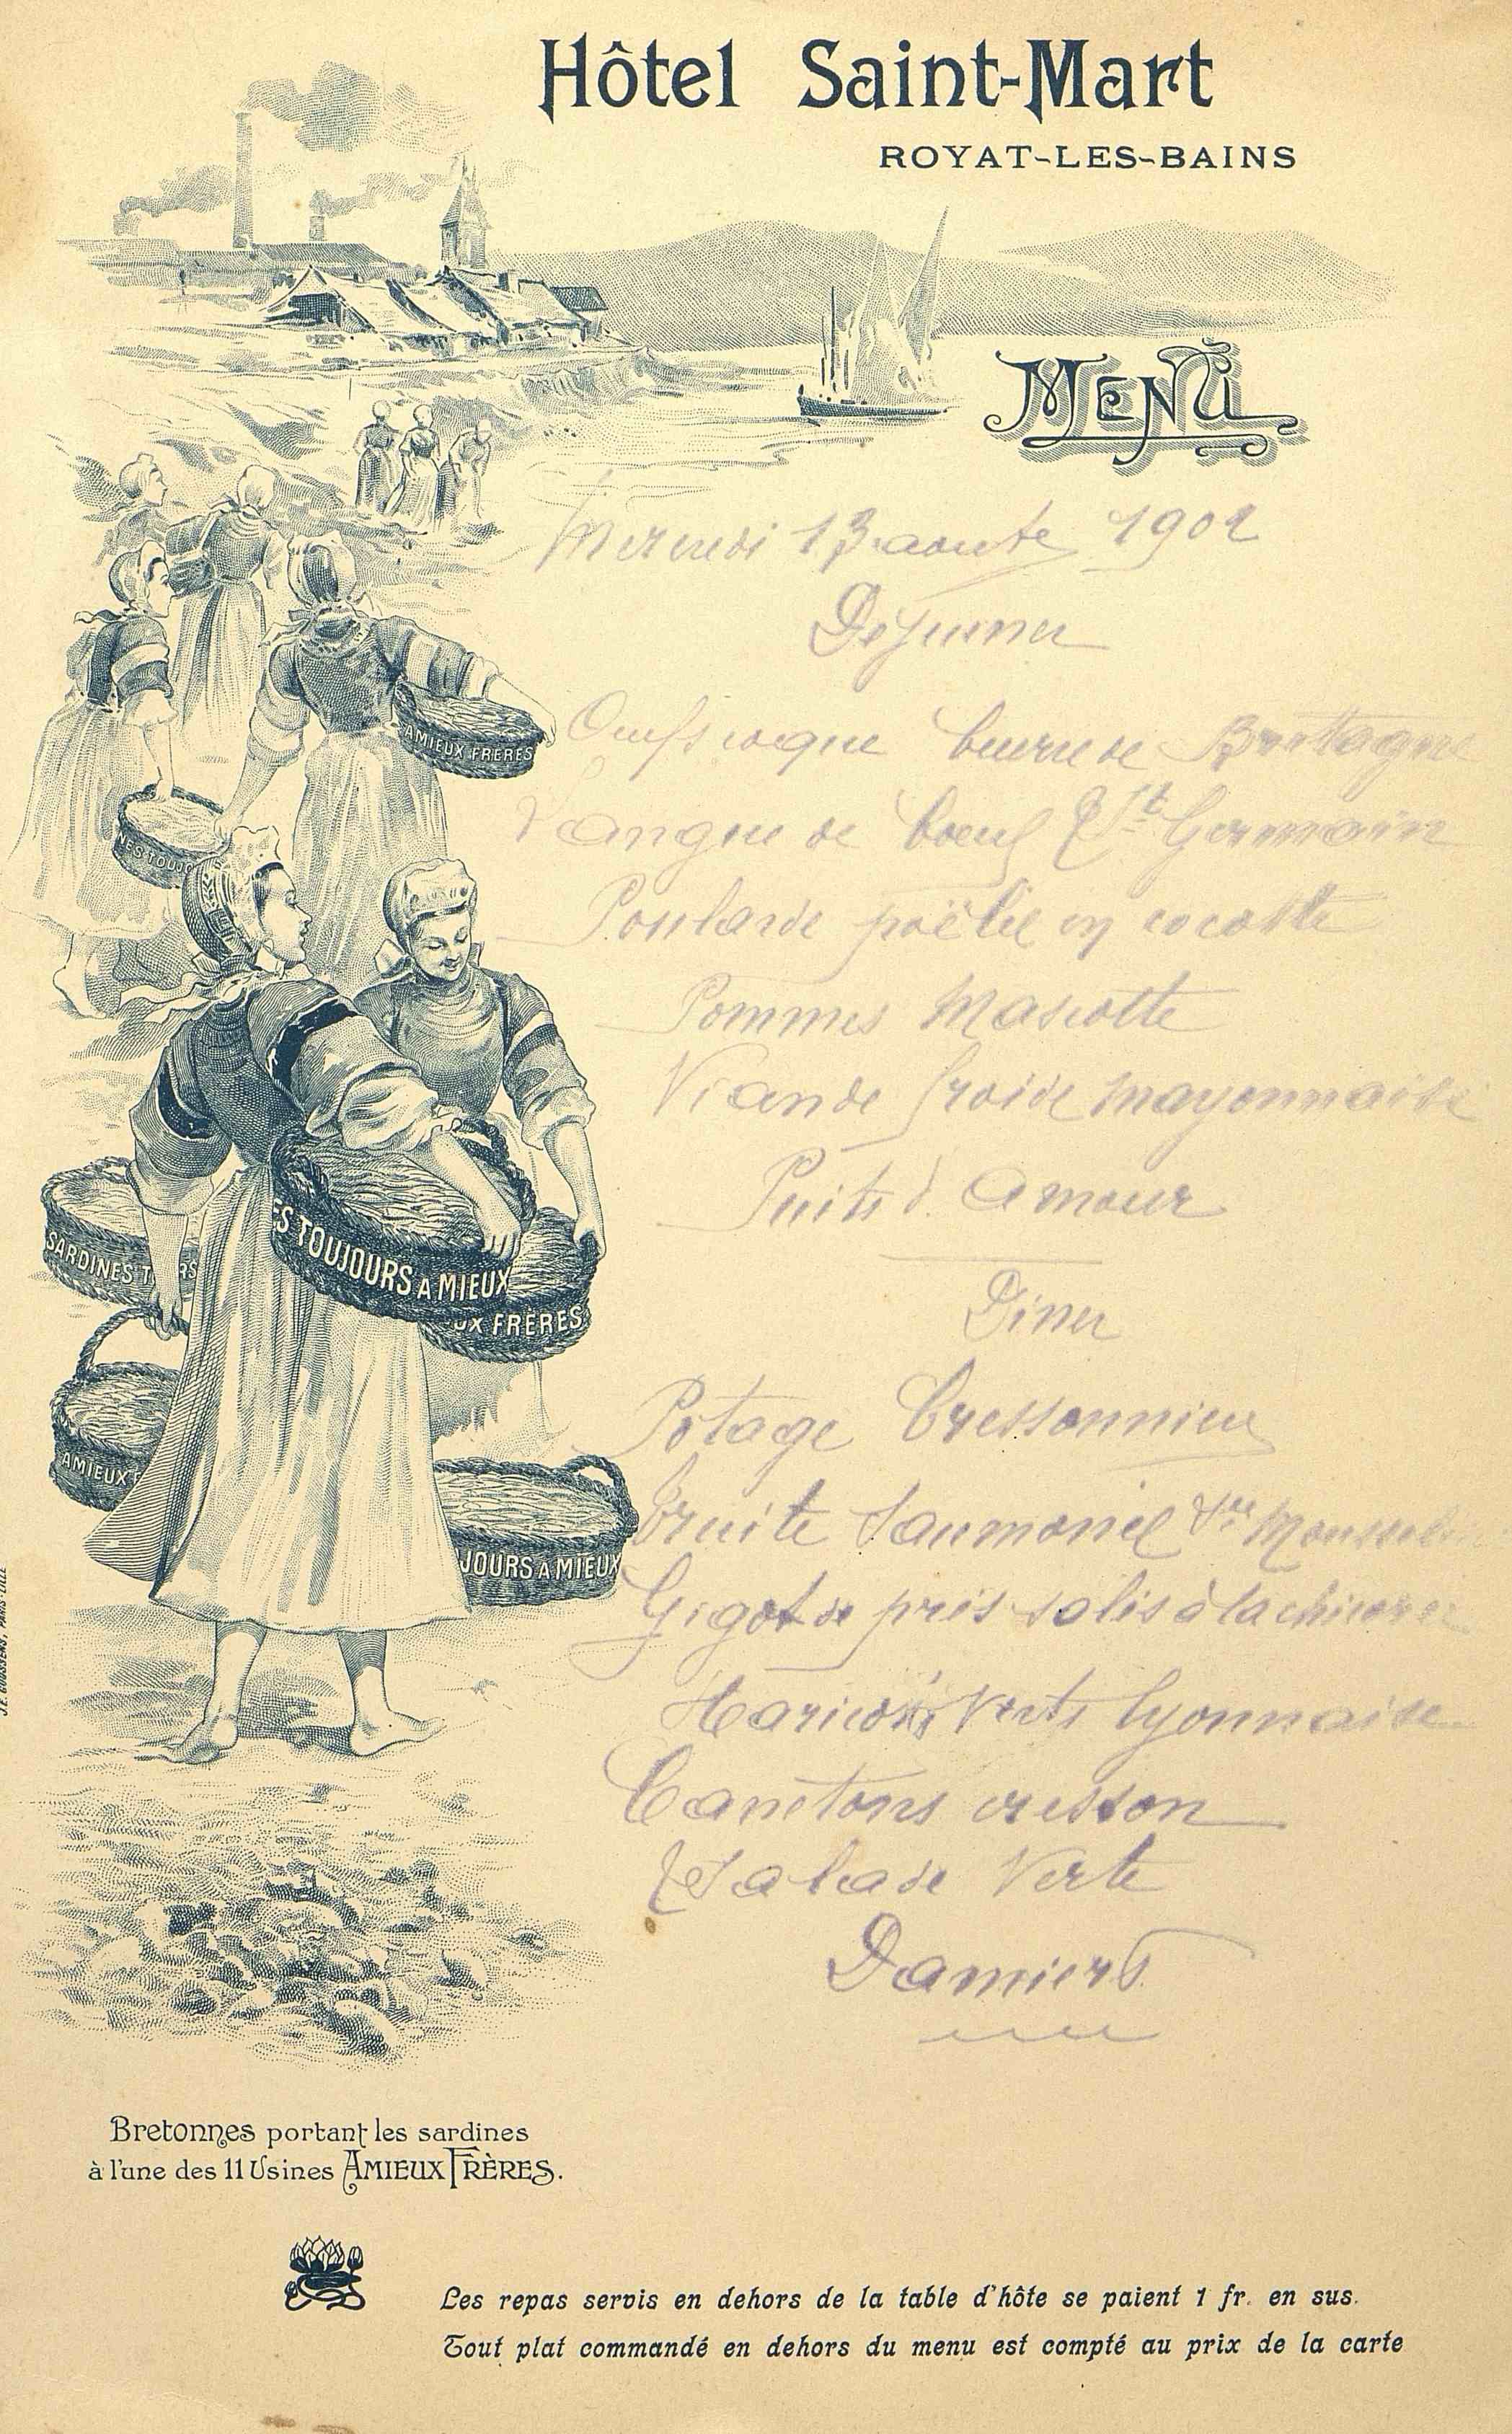 Hôtel Saint-Mart
ROYAT-LES-BAINS
MENU
Mercredi 13 aoute 1902
Dejeuner
Oeufs coque beurre de Bretagne
Langue de boeuf St Germain
Poularde poëlée en cocotte
Pommes Mascotte
Viande froide mayonnaise
Puits d'Amour
Diner
Potage Cressonniere
Truite Saumonée Sce Moussel
Gigot de prés salés à la
Haricots Verts lyonnaise
Canetons cresson
Salade Verte
Damiers
AMIEUX FRÈRES
ES TOUJO
SARDINES T RS
ES TOUJOURS A MIEUX
UX FRÈRES
AMIEUX
JOURS A MIEUX
J.E. GOOSSENS, PARIS-LILLE
Bretonnes portant les sardines
à l'une des 11 Usines AMIEUX FRÈRES.
Les repas servis en dehors de la table d'hôte se paient 1 fr. en sus.
Tout plat commandé en dehors du menu est compté au prix de la carte